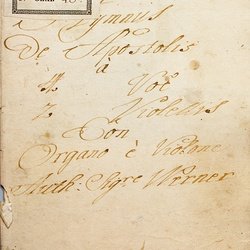 Hymnus
De Apostolis
à
4 Voc
2 Violinis
Con
Organo è Violone
Auth: Sigre Werner